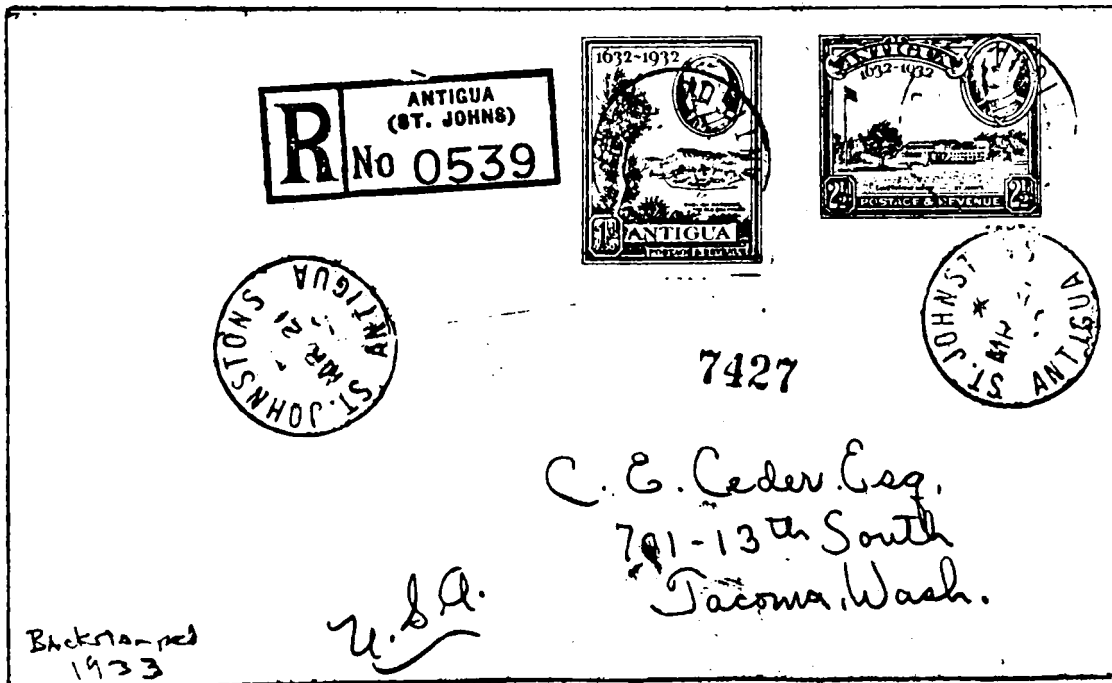 ANTIGUA
(ST. JOHNS)
R No 0539
1632-1932
1d
ANTIGUA
ANTIGUA
1632-1932
POSTAGE & REVENUE
ST. JOHNSTONS
ANTIGUA
MR 21
ST. JOHNST
ANTIGUA
7427
C. E. Ceder. Esq.
13th South
Tacoma, Wash.
U.S.A.
Backstamped
1933